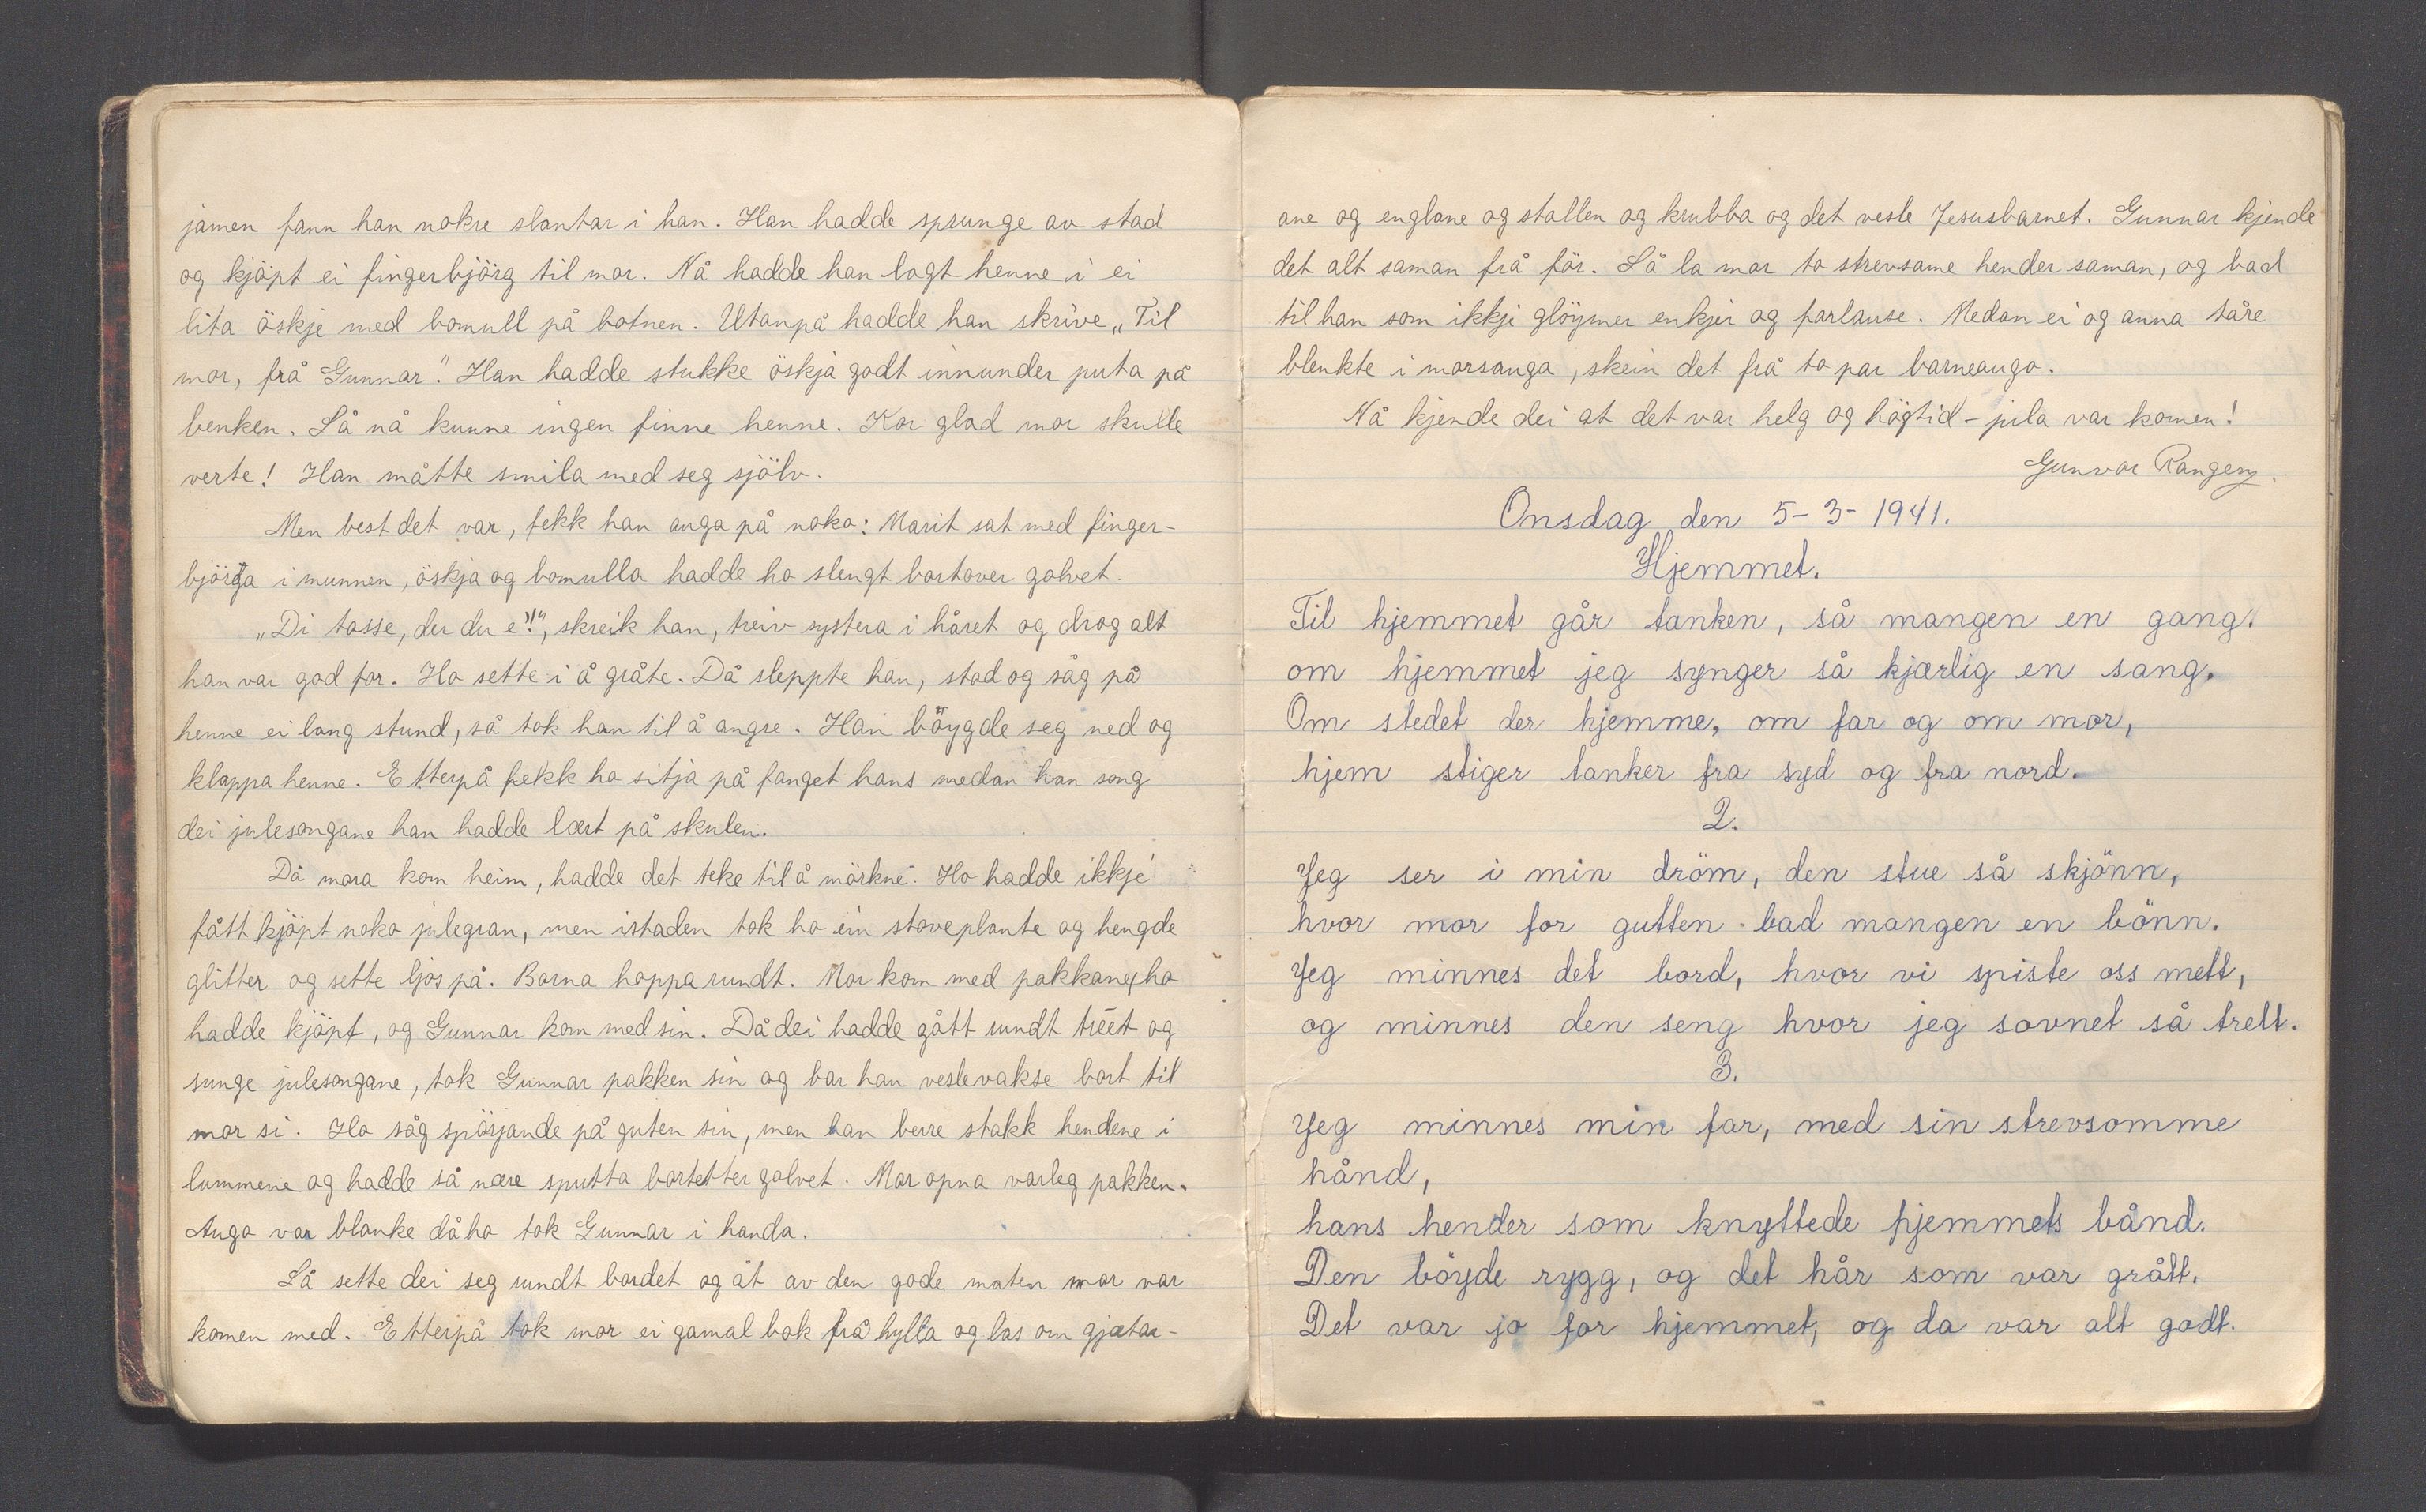 jamen fann han nokre slantar i han. Han hadde sprunge av stad
og kjöpt ei fingerbjörg til mor. Nå hadde han lagt henne i ei
lita öskje med bomull på botnen. Utanpå hadde han skrive „Til
mor, frå Gunnar." Han hadde stukke öskja godt innunder puta på
benken. Så nå kunne ingen finne henne. Kor glad mor skulle
verte! Han måtte smila med seg sjölv.
Men best det var, fekk han auga på noko: Marit sat med finger-
björga i munnen, öskja og bomullo hadde ho slengt bortover golvet.
„Di tosse, der du e!", skreik han, treiv systera i håret og drog alt
han var god for. Ho sette i å gråte. Då sleppte han, stod og såg på
henne ei lang stund, så tok han til å angre. Han böygde seg ned og
klappa henne. Etterpå fekk ho sitja på fanget hans medan han song
dei julesongane han hadde lært på skulen.
Då mora kom heim, hadde det teke til å mörkne. Ho hadde ikkje
fått kjöpt noko julegran, men istaden tok ho ein stoveplante og hengde
glitter og sette ljos på. Borna hoppa rundt. Mor kom med pakkane ho
hadde kjöpt, og Gunnar kom med sin. Då dei hadde gått rundt tréet og
sunge julesongane, tok Gunnar pakken sin og bar han veslevakse bort til
mor si. Ho såg spörjande på guten sin, men han berre stakk hendene i
lummene og hadde så nære sputta bortetter golvet. Mor opna varleg pakken.
Augo var blanke då ho tok Gunnar i handa.
Så sette dei seg rundt bordet og åt av den gode maten mor var
komen med. Etterpå tok mor ei gamal bok frå hylla og las om gjetar-
ane og englane og stallen og krubba og det vesle Jesusbarnet. Gunnar kjende
det alt saman frå för. Så la mor to strevsame hender saman, og bad
til han som ikkje glöymer enkjer og farlause. Medan ei og anna tåre
blenkte i morsauga, skein det frå to par barneaugo.
Nå kjende dei at det var helg og högtid - jula var komen!
Gunvor Rangeng.
Onsdag den 5-3-1941.
Hjemmet.
Til hjemmet går tanken, så mangen en gang.
om hjemmet jeg synger så kjærlig en sang.
Om stedet der hjemme, om far og om mor,
hjem stiger tanker fra syd og fra nord.
2.
Jeg ser i min dröm, den stue så skjönn,
hvor mor for gutten bad mangen en bönn.
Jeg minnes det bord, hvor vi spiste oss mett,
og minnes den seng hvor jeg sovnet så trett.
3.
Jeg minnes min far, med sin strevsomme
hånd,
hans hender som knyttede hjemmets bånd.
Den böyde rygg, og det hår som var grått.
Det var jo for hjemmet, og da var alt godt.